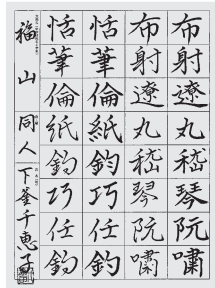 布射遼丸嵇琴阮嘯
布射遼丸嵇琴阮嘯
恬筆倫紙鈞巧任釣
恬筆倫紙鈞巧任釣
福山 同人 下釜千恵子